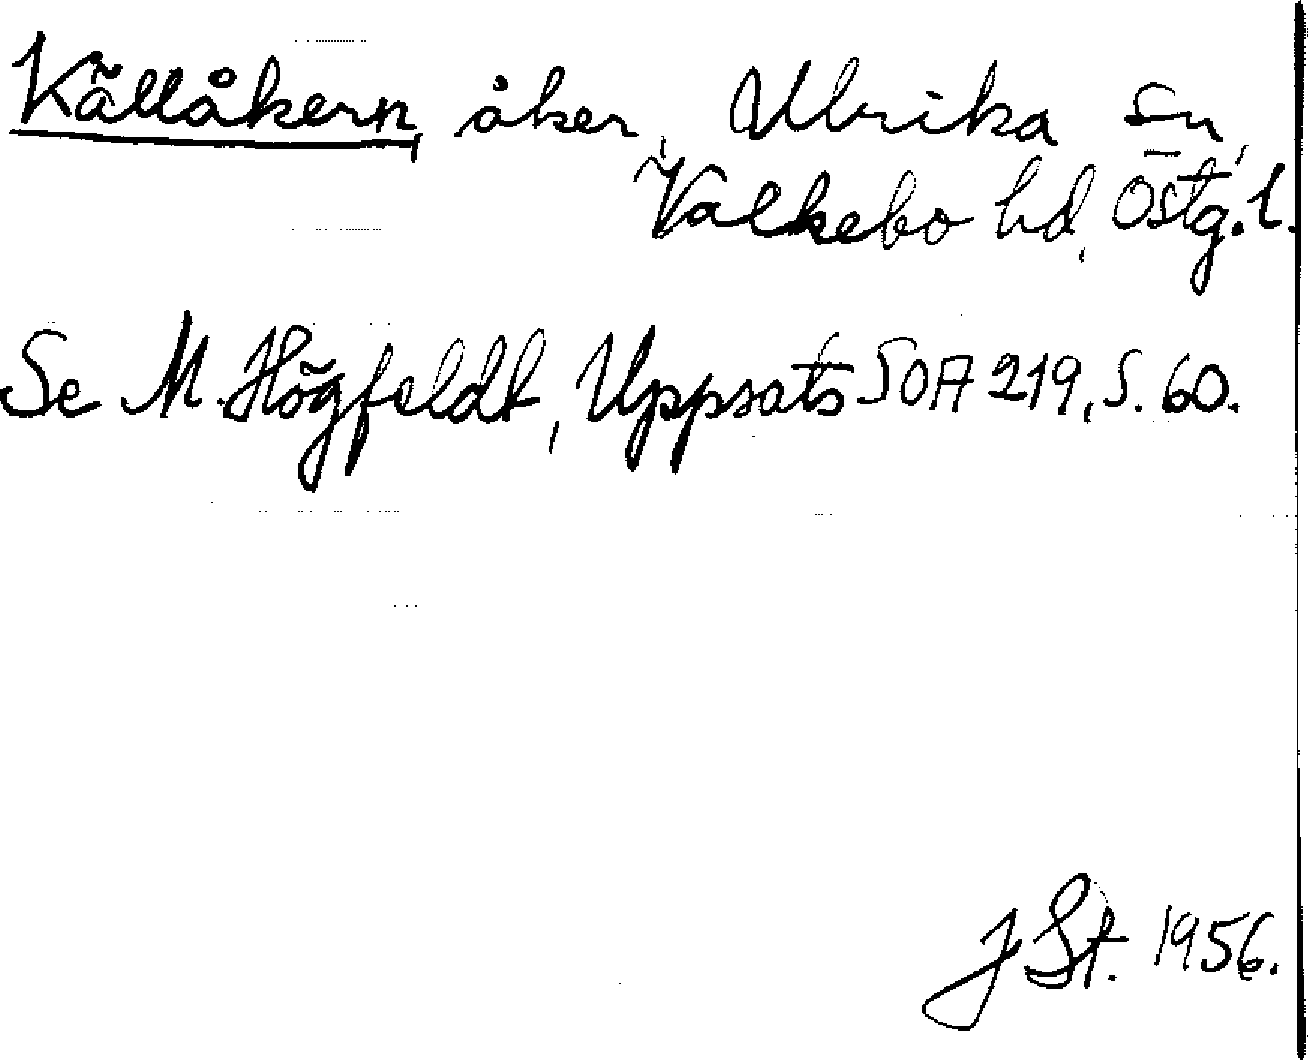 Källåkern, åker, Ulrika sn,
Valkebo hd, Östg. l.
Se M. Högfeldt, Uppsats SOA 219, s. 60.
J St. 1956.